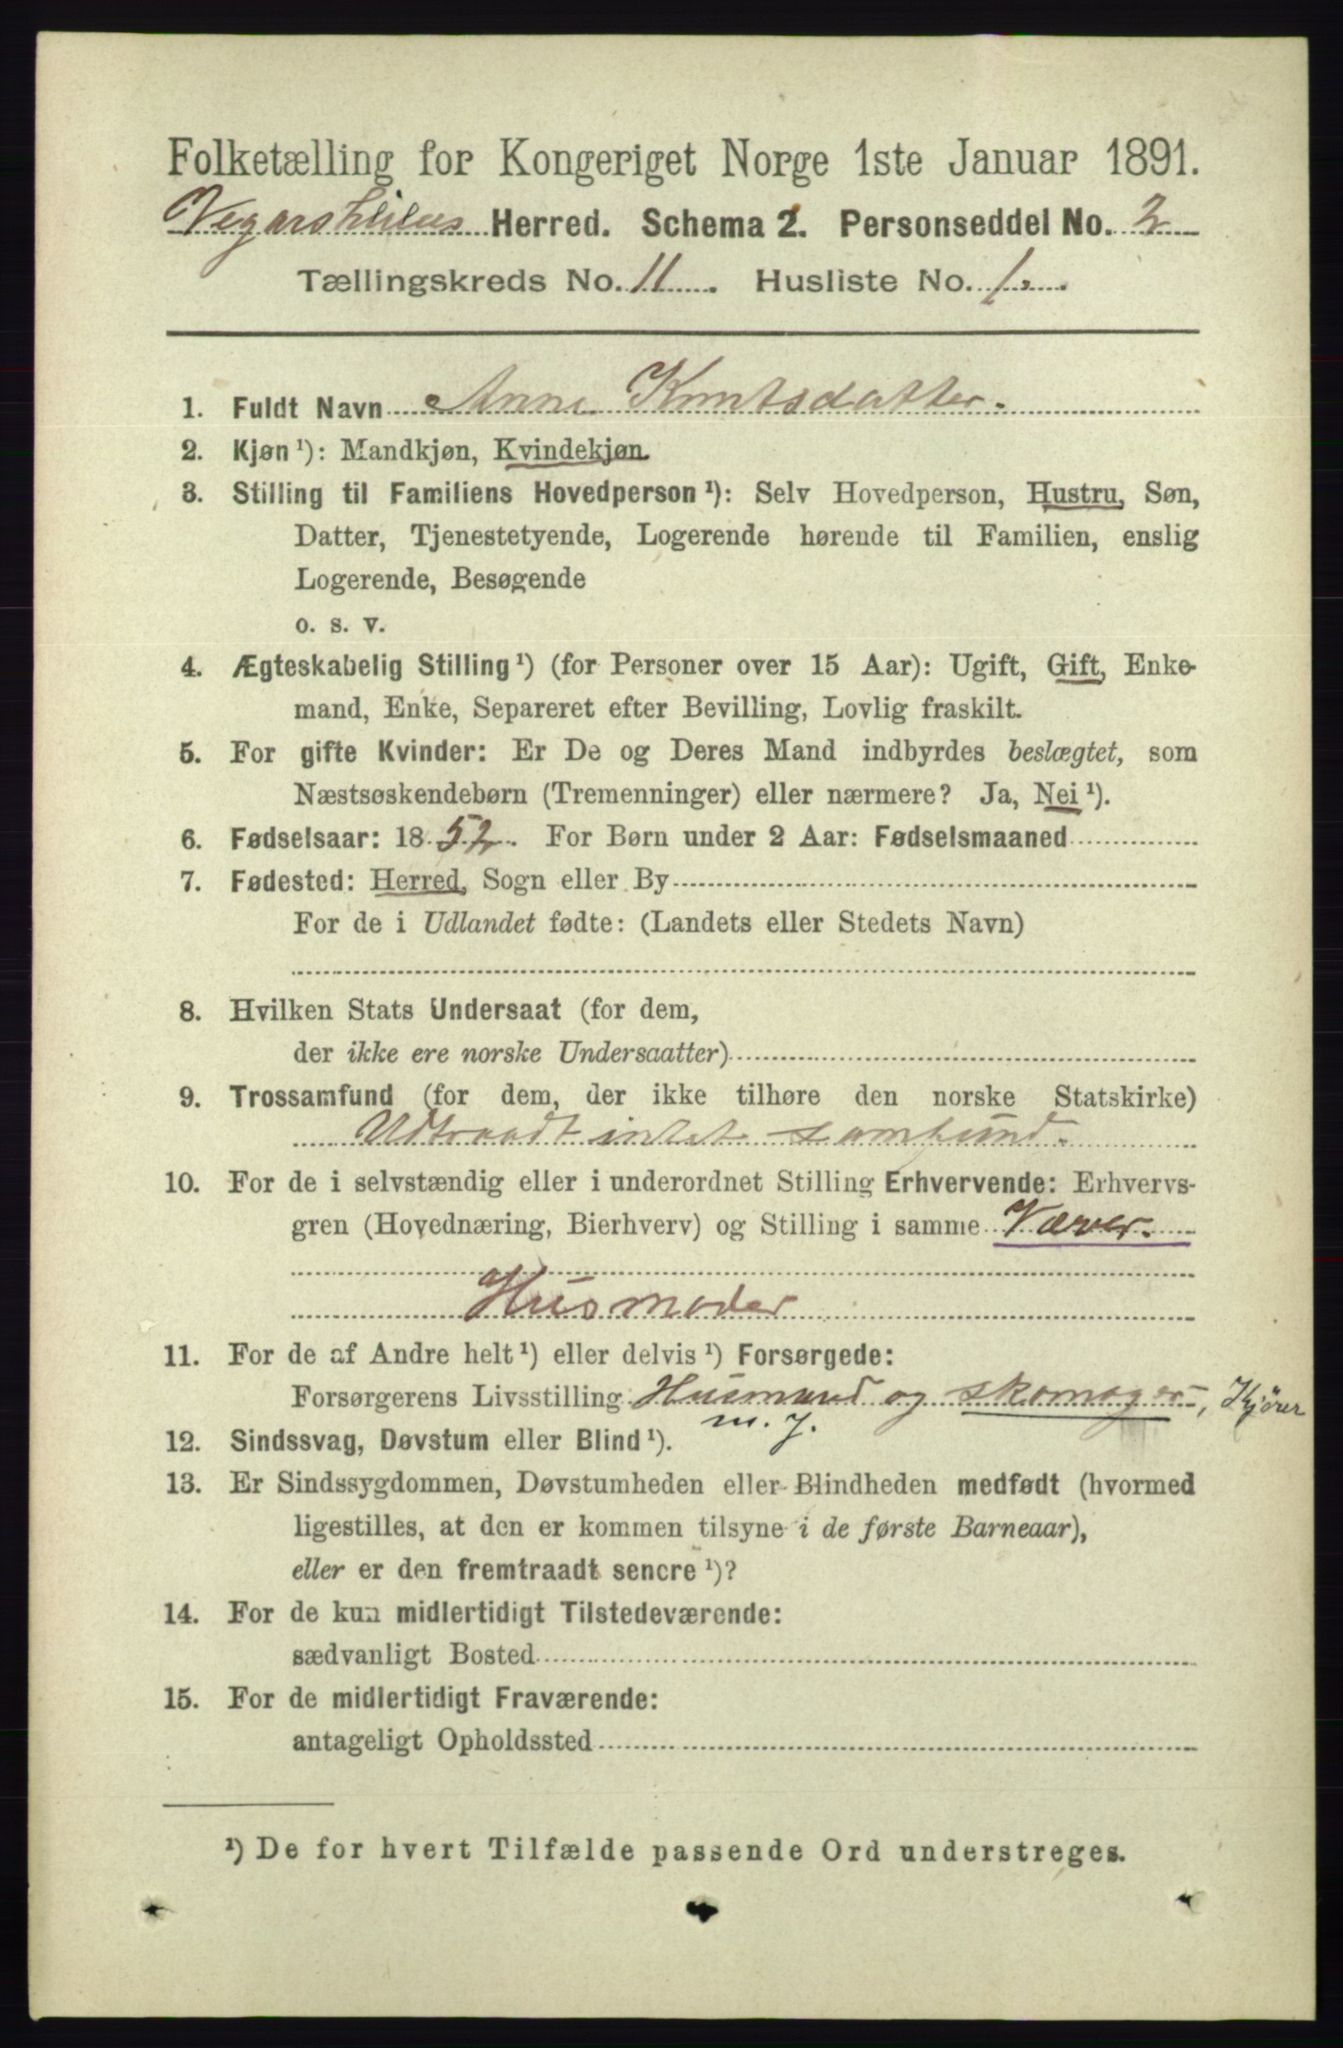 Folketælling for Kongeriget Norge 1ste Januar 1891.
Vegarsheiens Herred. Schema 2. Personseddel No. 2
Tællingskreds No. 11. Husliste No. 1.
1. Fuldt Navn Anne Knutsdatter.
2. Kjøn ¹): Mandkjøn, Kvindekjøn.
3. Stilling til Familiens Hovedperson ¹): Selv Hovedperson, Hustru, Søn,
Datter, Tjenestetyende, Logerende hørende til Familien, enslig
Logerende, Besøgende
o. s. v.
4. Ægteskabelig Stilling ¹) (for Personer over 15 Aar): Ugift, Gift, Enke-
mand, Enke, Separeret efter Bevilling, Lovlig fraskilt.
5. For gifte Kvinder: Er De og Deres Mand indbyrdes beslægtet, som
Næstsøskendebørn (Tremenninger) eller nærmere? Ja, Nei ¹).
6. Fødselsaar: 1852. For Børn under 2 Aar: Fødselsmaaned
7. Fødested: Herred, Sogn eller By
For de i Udlandet fødte: (Landets eller Stedets Navn)
8. Hvilken Stats Undersaat (for dem,
der ikke ere norske Undersaatter)
9. Trossamfund (for dem, der ikke tilhøre den norske Statskirke)
Udtraadt intet samfund.
10. For de i selvstændig eller i underordnet Stilling Erhvervende: Erhvervs-
gren (Hovednæring, Bierhverv) og Stilling i samme Væver.
Husmoder
11. For de af Andre helt ¹) eller delvis ¹) Forsørgede:
Forsørgerens Livsstilling Husmand og skomager, Kjører
m. J.
12. Sindssvag, Døvstum eller Blind ¹).
13. Er Sindssygdommen, Døvstumheden eller Blindheden medfødt (hvormed
ligestilles, at den er kommen tilsyne i de første Barneaar),
eller er den fremtraadt senere ¹)?
14. For de kun midlertidigt Tilstedeværende:
sædvanligt Bosted
15. For de midlertidigt Fraværende:
antageligt Opholdssted
¹) De for hvert Tilfælde passende Ord understreges.